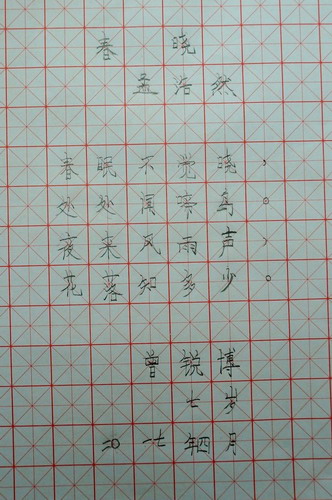 春晓
孟浩然
春眠不觉晓,
处处闻啼鸟。
夜来风雨声,
花落知多少。
曾锐博
七岁
二0一七年四月